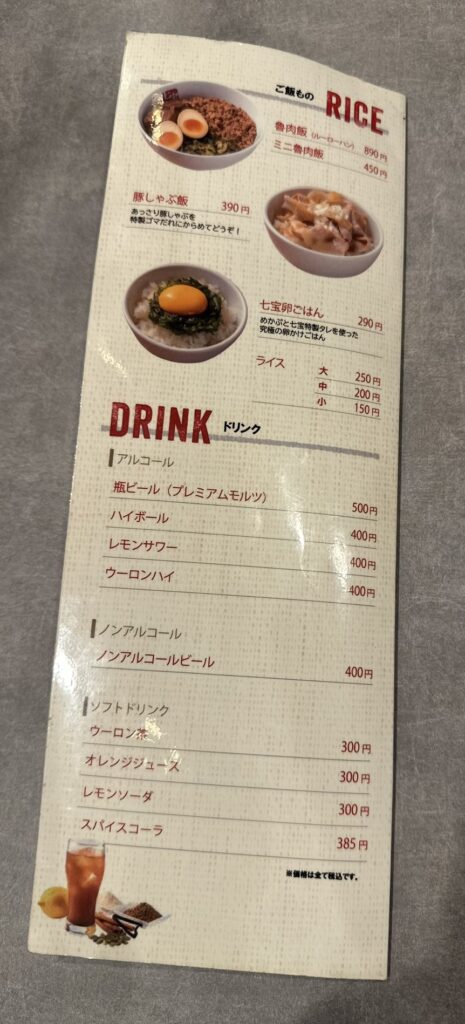 ご飯もの RICE
魯肉飯（ルーローハン） 890円
ミニ魯肉飯 450円
豚しゃぶ飯 390円
あっさり豚しゃぶを
特製ゴマだれにからめてどうぞ！
七宝卵ごはん 290円
めかぶと七宝特製タレを使った
究極の卵かけごはん
ライス 大 250円
中 200円
小 150円
DRINK ドリンク
アルコール
瓶ビール（プレミアムモルツ） 500円
ハイボール 400円
レモンサワー 400円
ウーロンハイ 400円
ノンアルコール
ノンアルコールビール 400円
ソフトドリンク
ウーロン茶 300円
オレンジジュース 300円
レモンソーダ 300円
スパイスコーラ 385円
※価格は全て税込です。